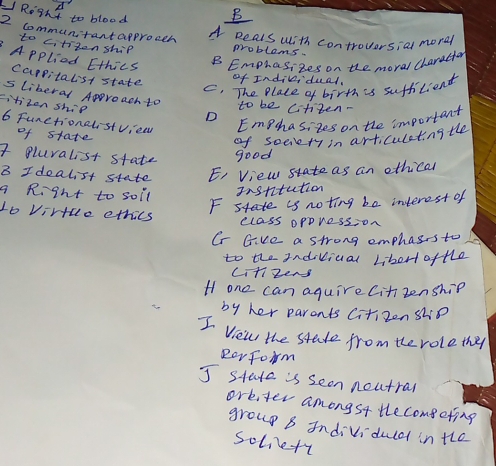 A
1 Right to blood
2 Communitant approach
to Citizenship
3 Applied Ethics
Cappitalist state
5 Liberal Approach to
Citizenship
6 Functionalist view
of state
7 Pluralist state
8 Idealist state
9 Right to soil
10 Virtue ethics
B
A Deals with controversial moral
problems.
B Emphasizes on the moral character
of Individual.
C, The Place of birth is sufficient
to be Citizen -
D Emphasizes on the important
of society in articulating the
good
E, View state as an ethical
Institution
F state is noting be interest of
class oppression
G Give a strong emphasis to
to the individual Libert of the
Citizens
H one can aquire Citizenship
by her parents Citizenship
I View the state from the role they
Perform
J state is seen neutral
orbiter amongst the competing
group & Individual in the
Society